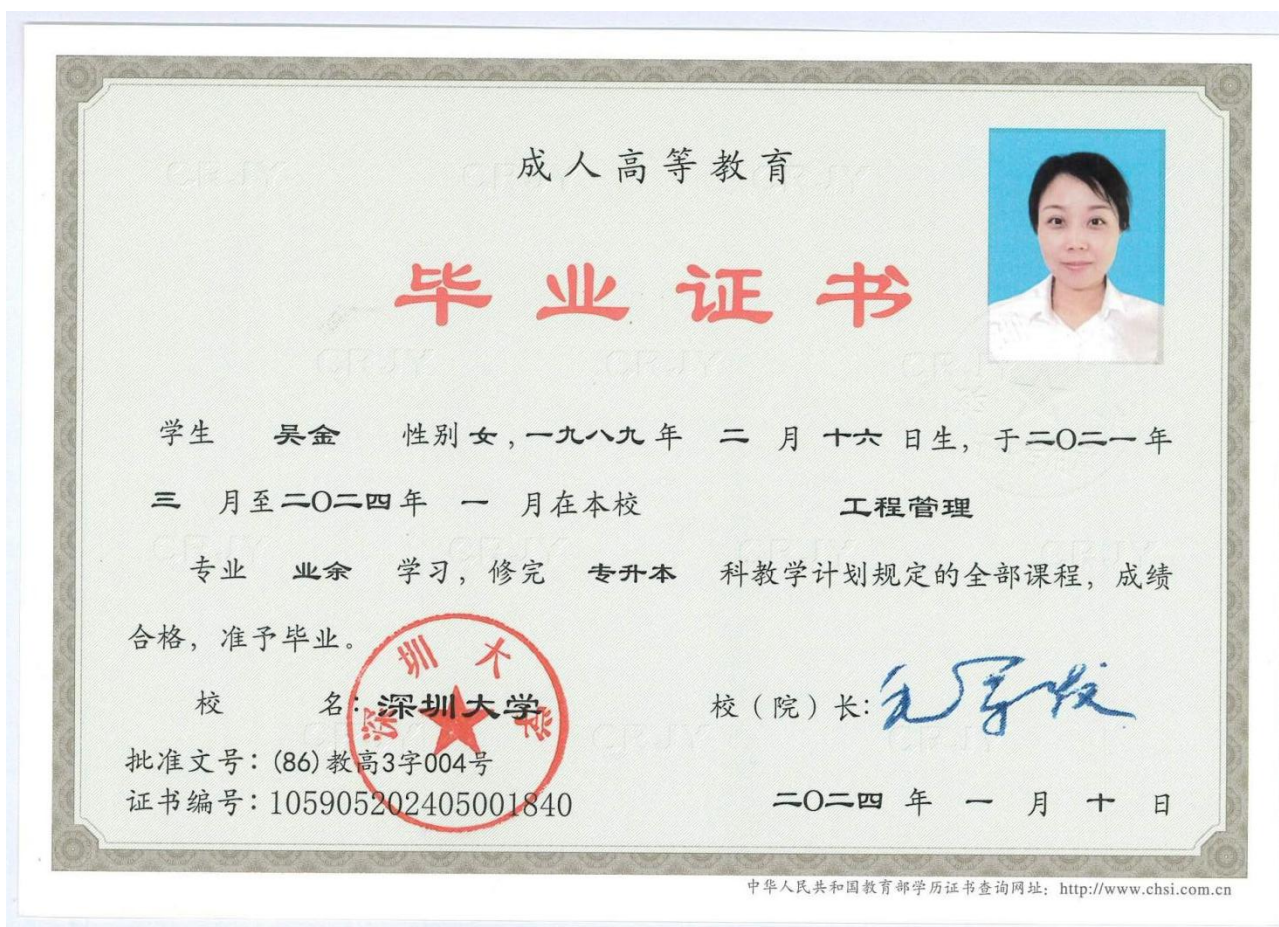 成人高等教育
毕业证书
学生 吴金 性别 女，一九八九 年 二 月 十六 日生，于二〇二一 年
三 月至二〇二四 年 一 月在本校 工程管理
专业 业余 学习，修完 专升本 科教学计划规定的全部课程，成绩
合格，准予毕业。
校 名：深圳大学
校（院）长：毛军发
深圳大学
批准文号：(86)教高3字004号
证书编号：105905202405001840
二〇二四 年 一 月 十 日
中华人民共和国教育部学历证书查询网址：http://www.chsi.com.cn
CRJY CRJY CRJY
CRJY CRJY CRJY
CRJY CRJY CRJY CRJY